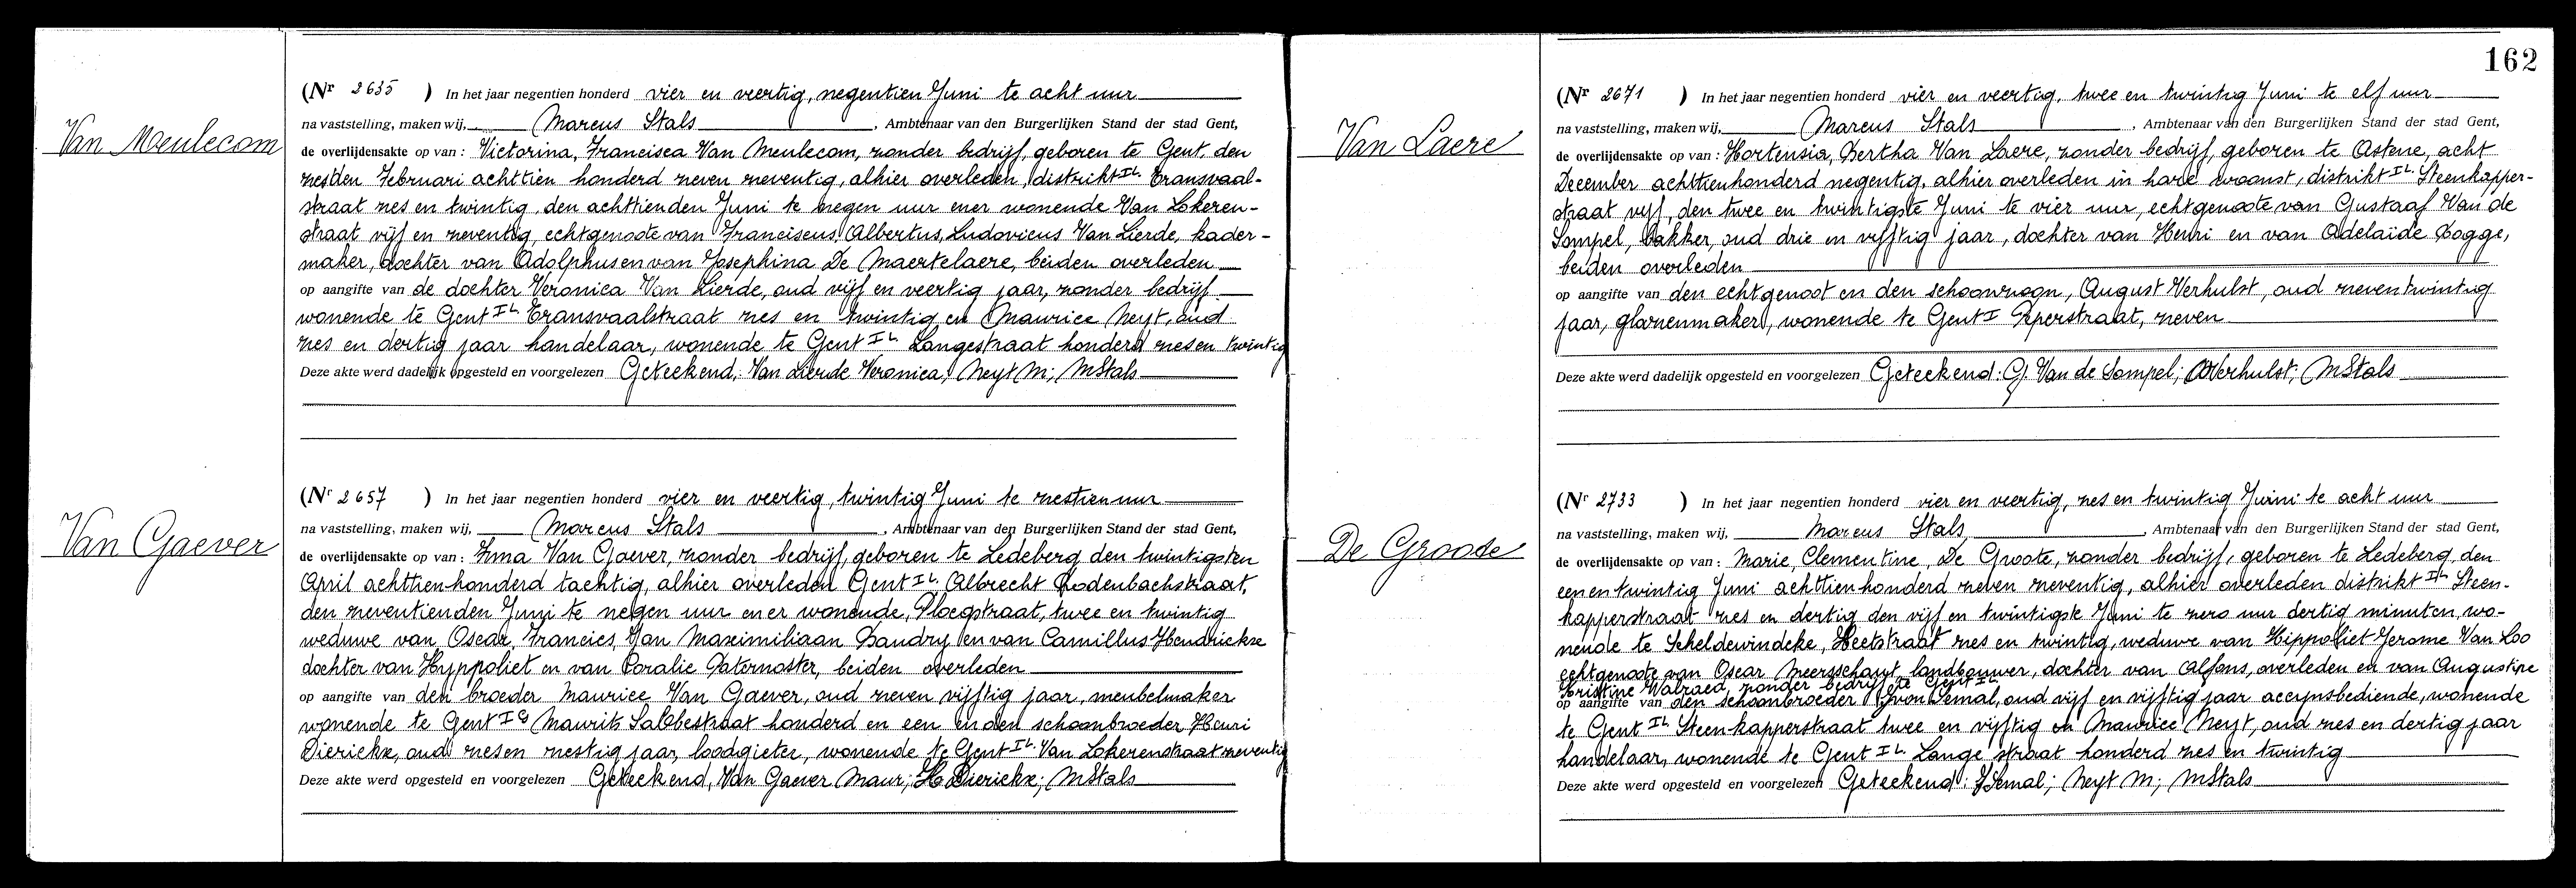 Van Meulecom
(Nr 2635 ) In het jaar negentien honderd vier en veertig, negentien Juni te acht uur
na vaststelling, maken wij, Marcus Stals, Ambtenaar van den Burgerlijken Stand der stad Gent,
de overlijdensakte op van : Victorina, Francisca Van Meulecom, zonder bedrijf, geboren te Gent, den
zesden Februari achttien honderd zeven zeventig, alhier overleden, distrikt IL Transvaal-
straat zes en twintig, den achttienden Juni te negen uur en er wonende Van Lokeren-
straat vijf en zeventig, echtgenoote van Franciscus, Albertus, Ludovicus Van Lierde, kader-
maker, dochter van Adolphus en van Josephina De Maertelaere, beiden overleden
op aangifte van de dochter Veronica Van Lierde, oud vijf en veertig jaar, zonder bedrijf
wonende te Gent IL Transvaalstraat zes en twintig en Maurice Neyt, oud
zes en dertig jaar handelaar, wonende te Gent IL Langestraat honderd zes en twintig
Deze akte werd dadelijk opgesteld en voorgelezen Geteekend: Van Lierde Veronica; Neyt M; MStals
Van Gaever
(Nr 2657 ) In het jaar negentien honderd vier en veertig, twintig Juni te zestien uur
na vaststelling, maken wij, Marcus Stals, Ambtenaar van den Burgerlijken Stand der stad Gent,
de overlijdensakte op van : Irma Van Gaever, zonder bedrijf, geboren te Ledeberg den twintigsten
April achttienhonderd tachtig, alhier overleden Gent IL, Albrecht Rodenbachstraat,
den zeventienden Juni te negen uur en er wonende, Ploegstraat, twee en twintig
weduwe van Oscar, Francies, Jan Maximiliaan Baudry en van Camillus Hendrickx
dochter van Hyppoliet en van Coralie Paternoster, beiden overleden
op aangifte van den broeder Maurice Van Gaever, oud zeven vijftig jaar, meubelmaker
wonende te Gent IG Maurits Sabbestraat honderd en een en den schoonbroeder Henri
Dierickx, oud zes en zestig jaar, loodgieter, wonende te Gent IL Van Lokerenstraat zeventig
Deze akte werd opgesteld en voorgelezen Geteekend, Van Gaever Maur; H Dierickx; MStals
162
Van Laere
(Nr 2671 ) In het jaar negentien honderd vier en veertig, twee en twintig Juni te elf uur
na vaststelling, maken wij, Marcus Stals, Ambtenaar van den Burgerlijken Stand der stad Gent,
de overlijdensakte op van : Hortensia, Bertha Van Laere, zonder bedrijf, geboren te Astene, acht
December achttienhonderd negentig, alhier overleden in hare woonst, distrikt IL Steenkapper-
straat vijf, den twee en twintigste Juni te vier uur, echtgenoote van Gustaaf Van de
Sompel, bakker, oud drie en vijftig jaar, dochter van Henri en van Adelaïde Bogge,
beiden overleden
op aangifte van den echtgenoot en den schoonzoon, August Verhulst, oud zeven twintig
jaar, glazenmaker, wonende te Gent I Peperstraat, zeven
Deze akte werd dadelijk opgesteld en voorgelezen Geteekend: G. Van de Sompel; AVerhulst; MStals
De Groote
(Nr 2733 ) In het jaar negentien honderd vier en veertig, zes en twintig Juini te acht uur
na vaststelling, maken wij, Marcus Stals, Ambtenaar van den Burgerlijken Stand der stad Gent,
de overlijdensakte op van : Marie, Clementine, De Groote, zonder bedrijf, geboren te Ledeberg, den
een en twintig Juni achttienhonderd zeven zeventig, alhier overleden distrikt IL Steen-
kapperstraat zes en dertig den vijf en twintigste Juni te zero uur dertig minuten, wo-
nende te Scheldewindeke, Heetstraat zes en twintig, weduwe van Hippoliet Jerome Van Loo
echtgenoote van Oscar Meersschaut, landbouwer, dochter van Alfons, overleden en van Augustine
Christine Walraed, zonder bedrijf te Gent IL
op aangifte van den schoonbroeder Yvon Semal, oud vijf en vijftig jaar accijnsbediende, wonende
te Gent IL Steenkapperstraat twee en vijftig en Maurice Neyt, oud zes en dertig jaar
handelaar, wonende te Gent IL Lange straat honderd zes en twintig
Deze akte werd opgesteld en voorgelezen Geteekend: Y Semal; Neyt M; MStals